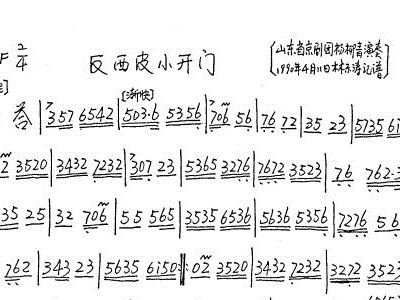 F 2/4
反西皮小开门
山东省京剧团杨柳青演奏
1990年4月11日林东涛记谱
[渐快]
357 6542 | 503·6 5356 | 706 56 | 76 72 | 35 23 | 5735 61
2 3520 | 3432 7232 | 307 23 | 5365 3276 | 7672 3523 | 76 762·3
35 25 | 32 706 | 55 565 | 3535 6536 | 5636 5356 | 7276 56
762 | 343 23 | 5635 6150 :‖: 02 3520 | 3432 7232 | 3272 3523